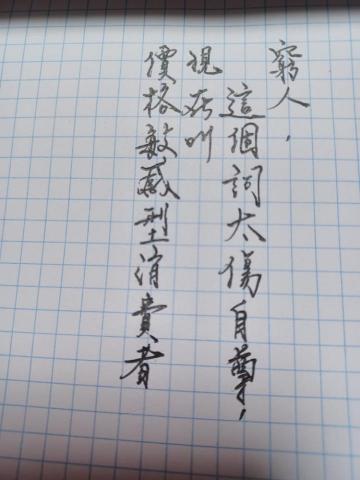 窮人，
這個詞太傷自尊，
現在叫
價格敏感型消費者